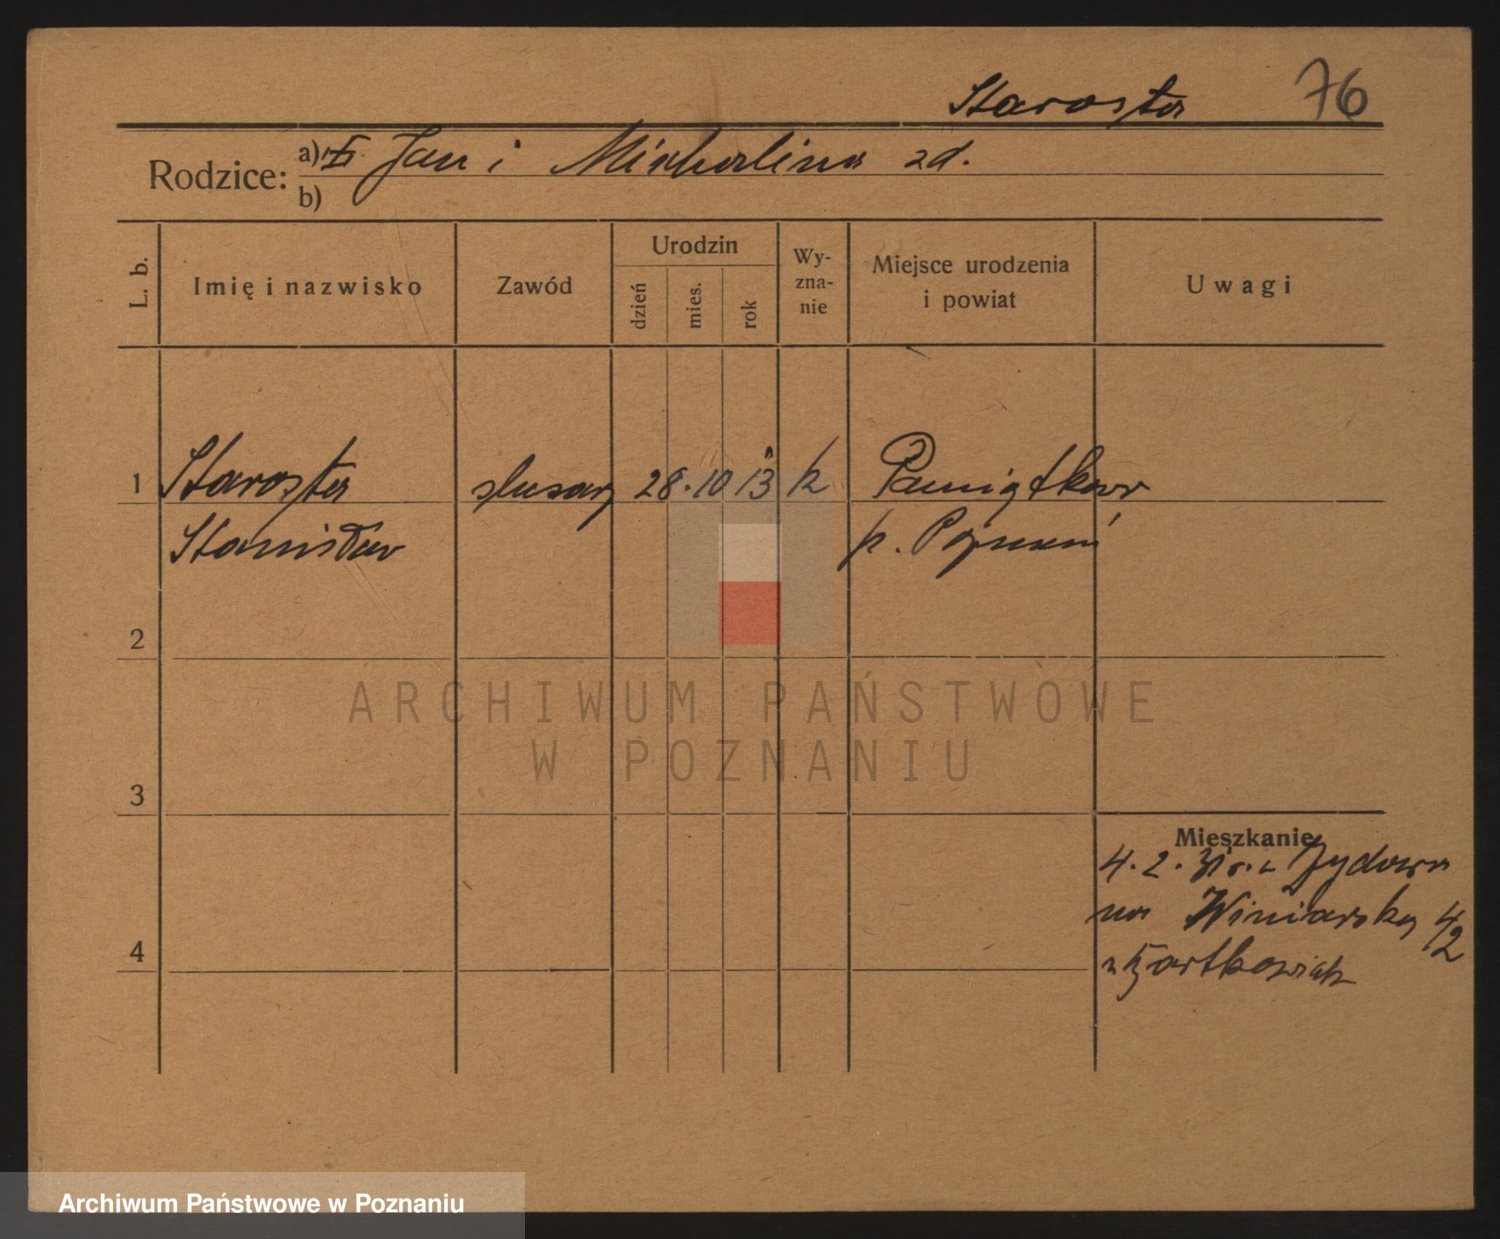 Starosta 76
Rodzice: a) Jan i Michalina zd.
b)
L. b. Imię i nazwisko Zawód Urodzin dzień mies. rok Wy-zna-nie Miejsce urodzenia i powiat Uwagi
1 Starosta ślusarz 28.10 13 k Pamiątkowo
Stanisław p. Poznań
2
ARCHIWUM PAŃSTWOWE
W POZNANIU
3
Mieszkanie
4. 2. 31 r. z Żydowa
na Winiarska 4/2
4
z Bartkowiak
Archiwum Państwowe w Poznaniu